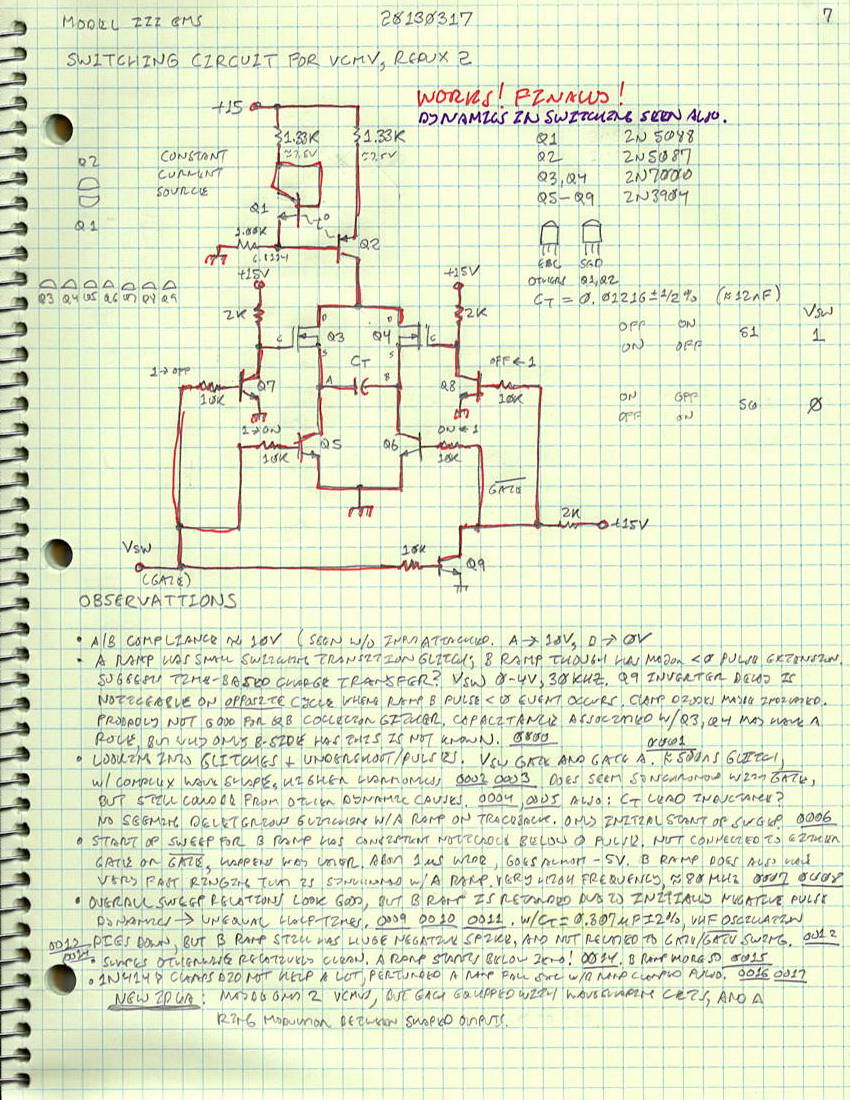 MODEL ZZZ EMS 20130317 7
SWITCHING CIRCUIT FOR VCMV, REDUX 2
WORKS! FINALLY!
DYNAMICS IN SWITCHING SEEN ALSO.
+15
1.33K 1.33K
≈7.5V ≈7.5V
Q1 2N5088
Q2 2N5087
Q3,Q4 2N7000
Q5-Q9 2N3904
Q2
Q1
CONSTANT
CURRENT
SOURCE
Q1
Q2
1.00K
EBC SGD
OTHERS Q1,Q2
CT = 0.01216 ± 1/2% (≈12nF)
Q3 Q4 Q5 Q6 Q7 Q8 Q9
+15V +15V
2K 2K
G D D G
Q3 Q4
S S
CT
A B
OFF ON S1
ON OFF
VSW
1
ON OFF S0
OFF ON
0
1→OFF OFF←1
10K Q7 Q8 10K
1→ON ON←1
10K Q5 Q6 10K
GATE
2K +15V
VSW
(GATE)
10K Q9
OBSERVATTIONS
• A/B COMPLIANCE ≈ 10V (SEEN W/O ATTACHED. A→10V, B→0V
• A RAMP HAS SMALL SWITCHING TRANSITION GLITCH; B RAMP THOUGH HAS MAJOR <0 PULSE EXTENSION.
SUGGESTS TIME-BASED CHARGE TRANSFER? VSW 0-4V, 30KHZ. Q9 INVERTER DELAY IS
NOTICEABLE ON OPPOSITE CYCLE WHERE RAMP B PULSE <0 EVENT OCCURS. CLAMP DIODES MAYBE INDICATED.
PROBABLY NOT GOOD FOR Q8 COLLECTOR EITHER, CAPACITANCE ASSOCIATED W/Q3,Q4 MAY HAVE A
ROLE, BUT WHY ONLY B-SIDE HAS THIS IS NOT KNOWN. 0000 0001
• LOOKING INTO GLITCHES + UNDERSHOOT/PULSES. VSW GATE AND GATE A. ≈500NS GLITCH,
W/ COMPLEX WAVE SHAPE, HIGHER HARMONICS 0002 0003 DOES SEEM SYNCHRONOUS WITH GATE,
BUT STILL COULD BE FROM OTHER DYNAMIC CAUSES. 0004, 0005 ALSO: CT LEAD INDUCTANCE?
NO SEEMING DELETERIOUS GLITCHING W/A RAMP ON TRACEBACK. ONLY INITIAL START OF SWEEP. 0006
• START OF SWEEP FOR B RAMP HAS CONSISTENT NOTICEABLE BELOW 0 PULSE. NOT CONNECTED TO EITHER
GATE OR GATE, HAPPENS WAY LATER. ABOUT 1us WIDE, GOES ALMOST -5V. B RAMP DOES ALSO HAVE
VERY FAST RINGING THAT IS SYNCHRONIZED W/A RAMP. VERY HIGH FREQUENCY, ≈80MHZ 0007 0008
• OVERALL SWEEP RELATIONS LOOK GOOD, BUT B RAMP IS RETARDED DUE TO INITIALLY NEGATIVE PULSE
DYNAMICS → UNEQUAL HALF-TIMES. 0009 0010 0011. W/CT = 0.307μF±2%, VHF OSCILLATION
0012 DIES DOWN, BUT B RAMP STILL HAS HUGE NEGATIVE SPIKE, AND NOT RELATED TO GATE/GATE SWING. 0012
• SWEEPS OTHERWISE RELATIVELY CLEAN. A RAMP STARTS BELOW ZERO! 0014. B RAMP MORE SO 0015
• 1N4148 CLAMPS DID NOT HELP A LOT, PERTURBED A RAMP 0016 0017
NEW IDEA: MAYBE 2 VCMV, BUT EACH EQUIPPED WITH WAVESHAPING CKTS, AND A
RING MODULATOR BETWEEN SHAPED OUTPUTS.